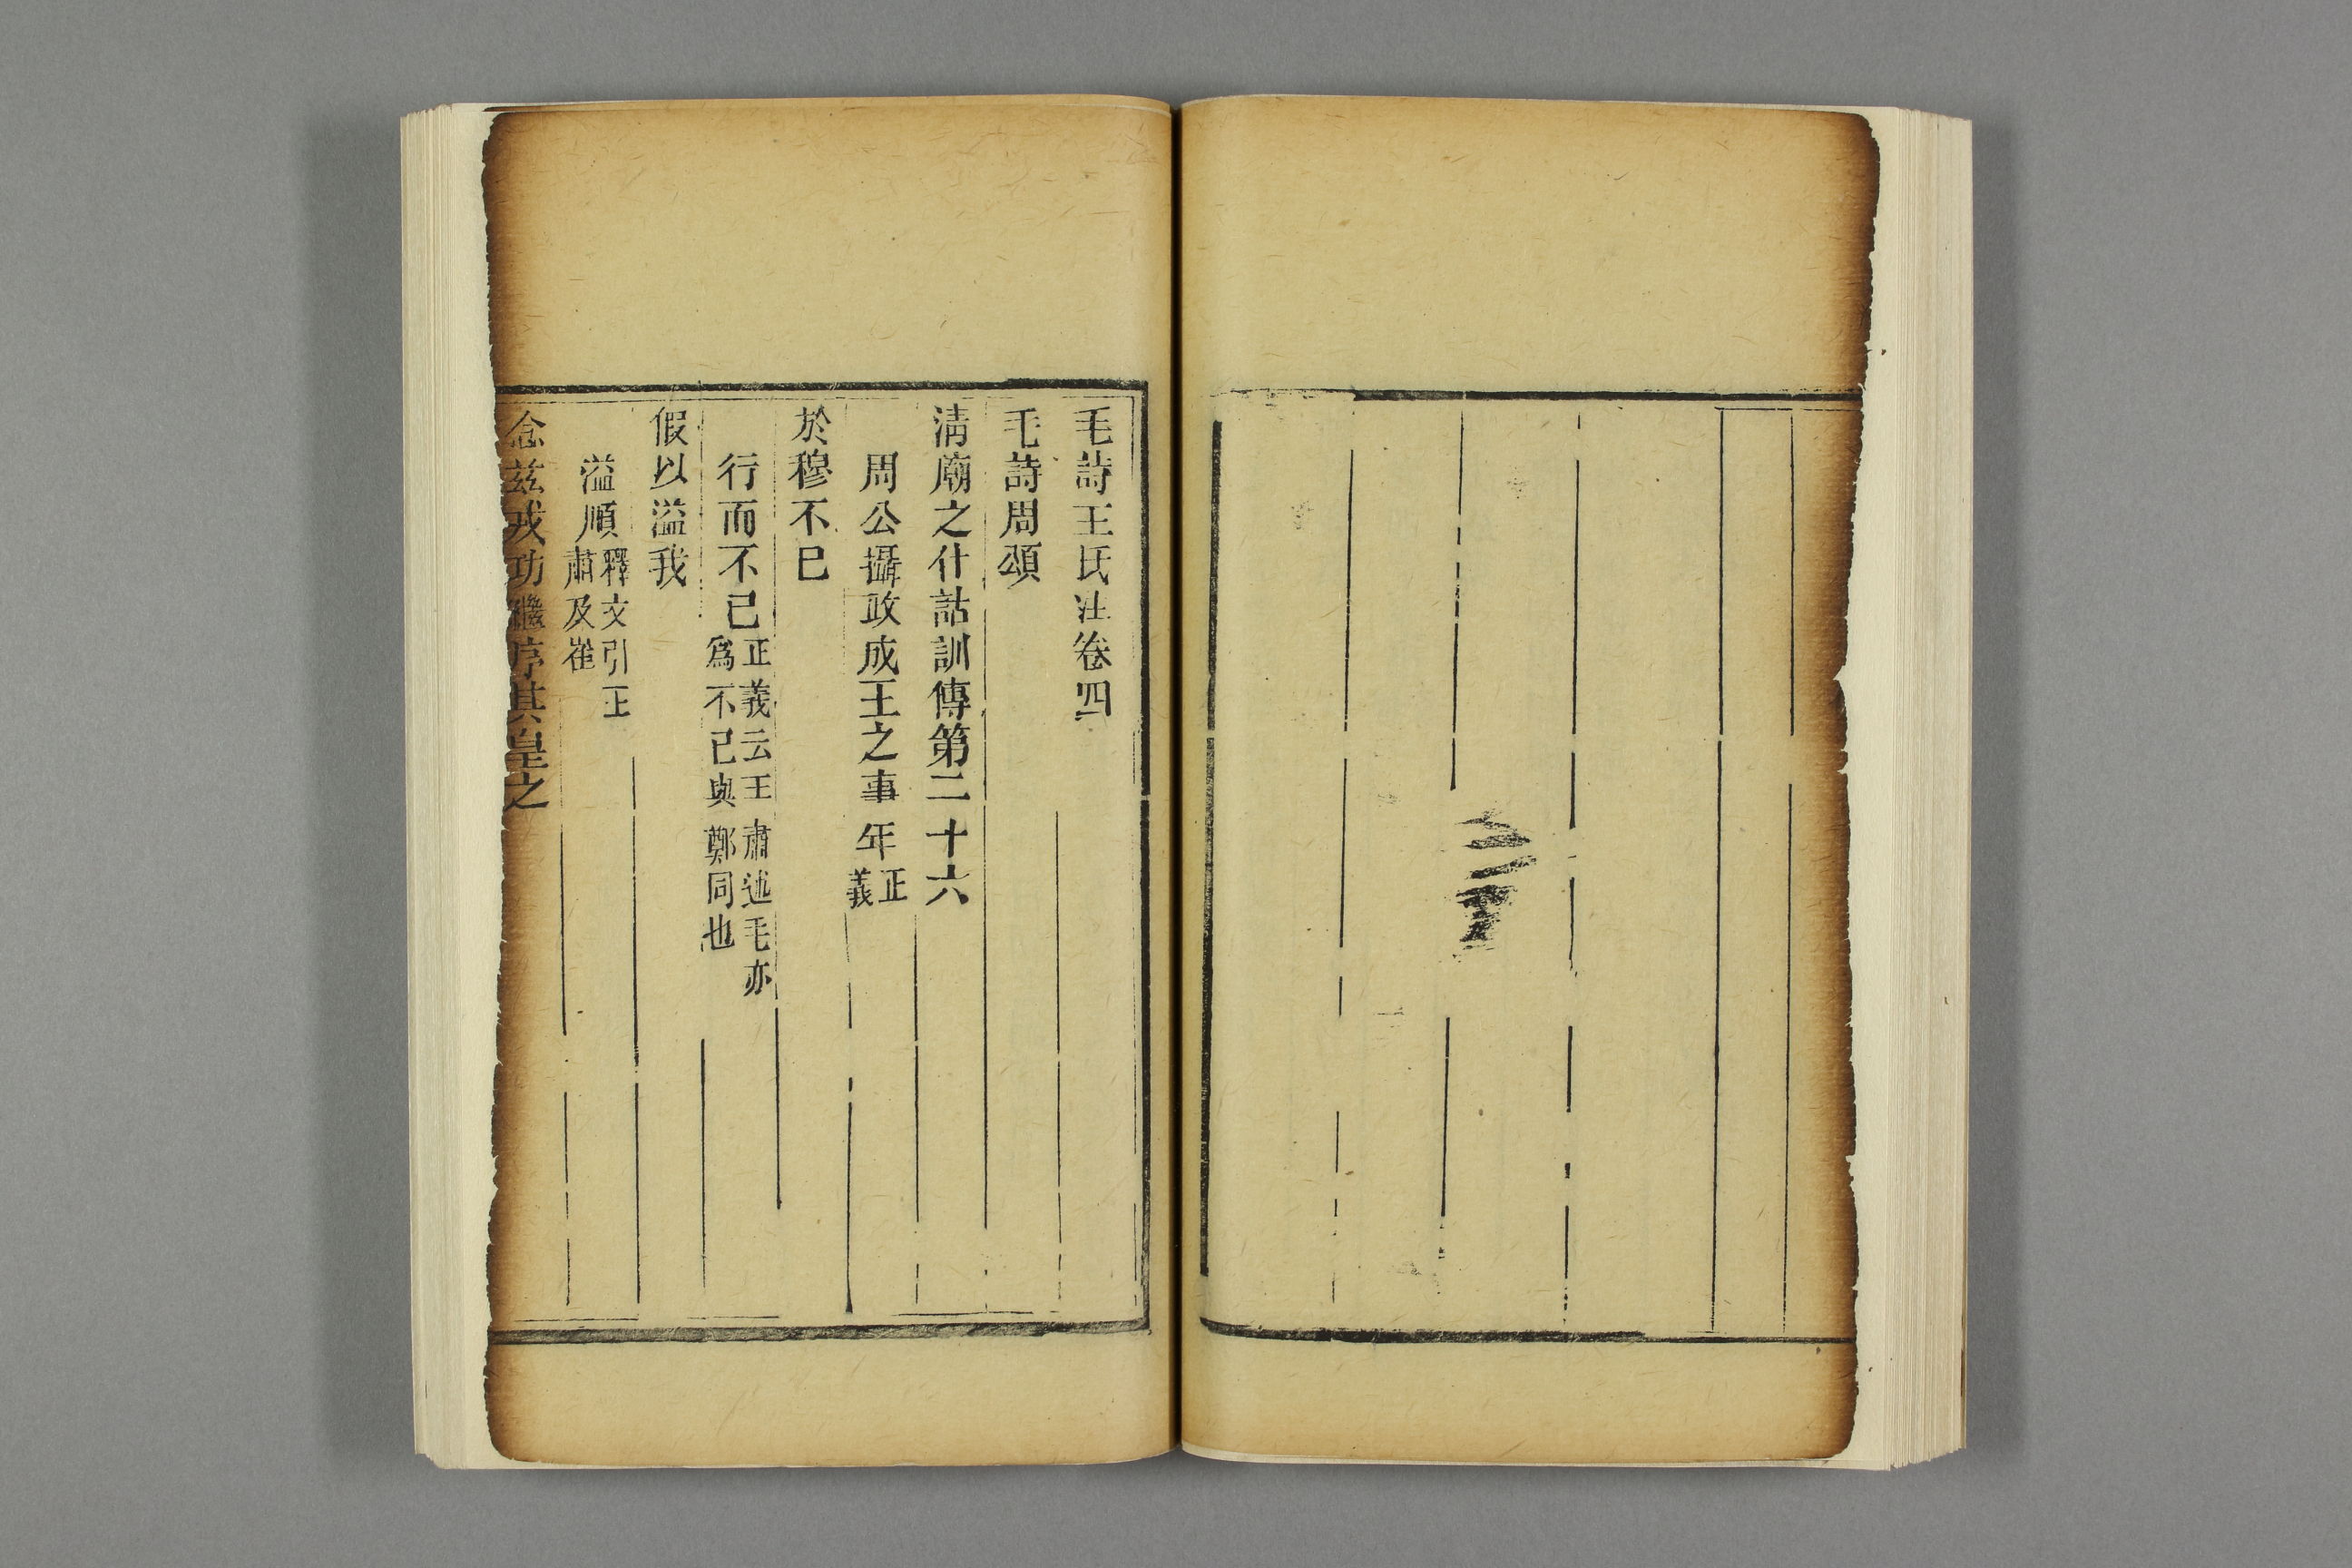 毛詩王氏注卷四
毛詩周頌
淸廟之什詁訓傳第二十六
周公攝政成王之事年正義
於穆不巳
行而不己正義云王肅述毛亦爲不己與鄭同也
假以溢我
溢順釋文引王肅及崔
念茲戎功繼序其皇之